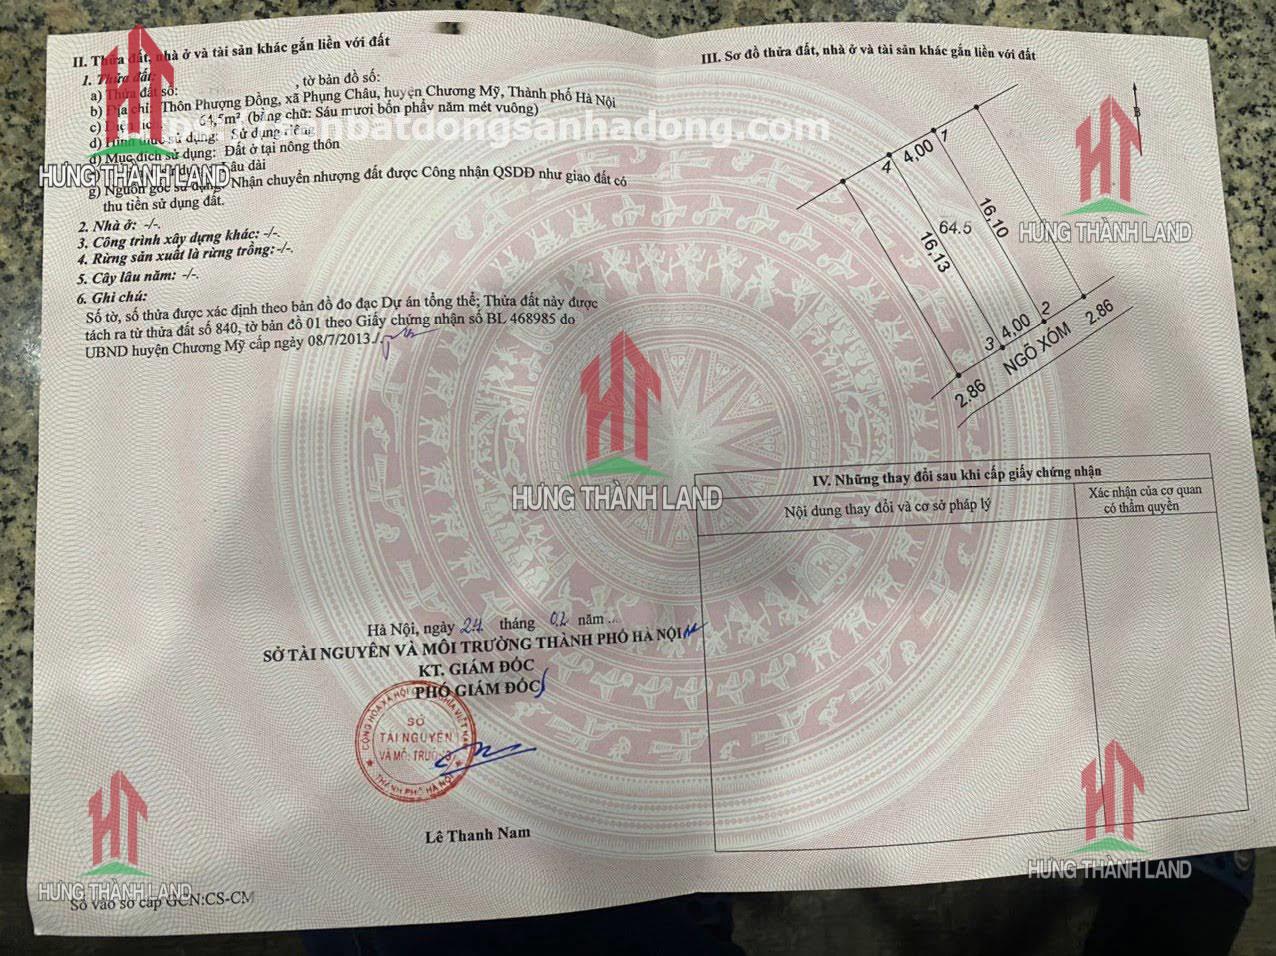 II. Thửa đất, nhà ở và tài sản khác gắn liền với đất
1. Thửa đất:
a) Thửa đất số: , tờ bản đồ số:
b) Địa chỉ: Thôn Phượng Đồng, xã Phụng Châu, huyện Chương Mỹ, Thành phố Hà Nội
c) Diện tích: 64,5m² (bằng chữ: Sáu mươi bốn phẩy năm mét vuông)
d) Hình thức sử dụng: Sử dụng riêng
đ) Mục đích sử dụng: Đất ở tại nông thôn
sử dụng: Lâu dài
g) Nguồn gốc sử dụng: Nhận chuyển nhượng đất được Công nhận QSDĐ như giao đất có
thu tiền sử dụng đất.
2. Nhà ở: -/-.
3. Công trình xây dựng khác: -/-.
4. Rừng sản xuất là rừng trồng: -/-.
5. Cây lâu năm: -/-.
6. Ghi chú:
Số tờ, số thửa được xác định theo bản đồ đo đạc Dự án tổng thể; Thửa đất này được
tách ra từ thửa đất số 840, tờ bản đồ 01 theo Giấy chứng nhận số BL 468985 do
UBND huyện Chương Mỹ cấp ngày 08/7/2013./.
Hà Nội, ngày 24 tháng 02 năm ...
SỞ TÀI NGUYÊN VÀ MÔI TRƯỜNG THÀNH PHỐ HÀ NỘI
KT. GIÁM ĐỐC
PHÓ GIÁM ĐỐC
SỞ
TÀI NGUYÊN
VÀ MÔI TRƯỜNG
THÀNH PHỐ HÀ NỘI
Lê Thanh Nam
Số vào sổ cấp GCN:CS-CM
III. Sơ đồ thửa đất, nhà ở và tài sản khác gắn liền với đất
B
4 4,00 1
16,10
64.5
16,13
3 4,00 2
2.86 NGÕ XÓM 2.86
IV. Những thay đổi sau khi cấp giấy chứng nhận
Nội dung thay đổi và cơ sở pháp lý
Xác nhận của cơ quan
có thẩm quyền
nbatdongsanhadong.com
HƯNG THÀNH LAND
HƯNG THÀNH LAND
HƯNG THÀNH LAND
HƯNG THÀNH LAND
HƯNG THÀNH LAND